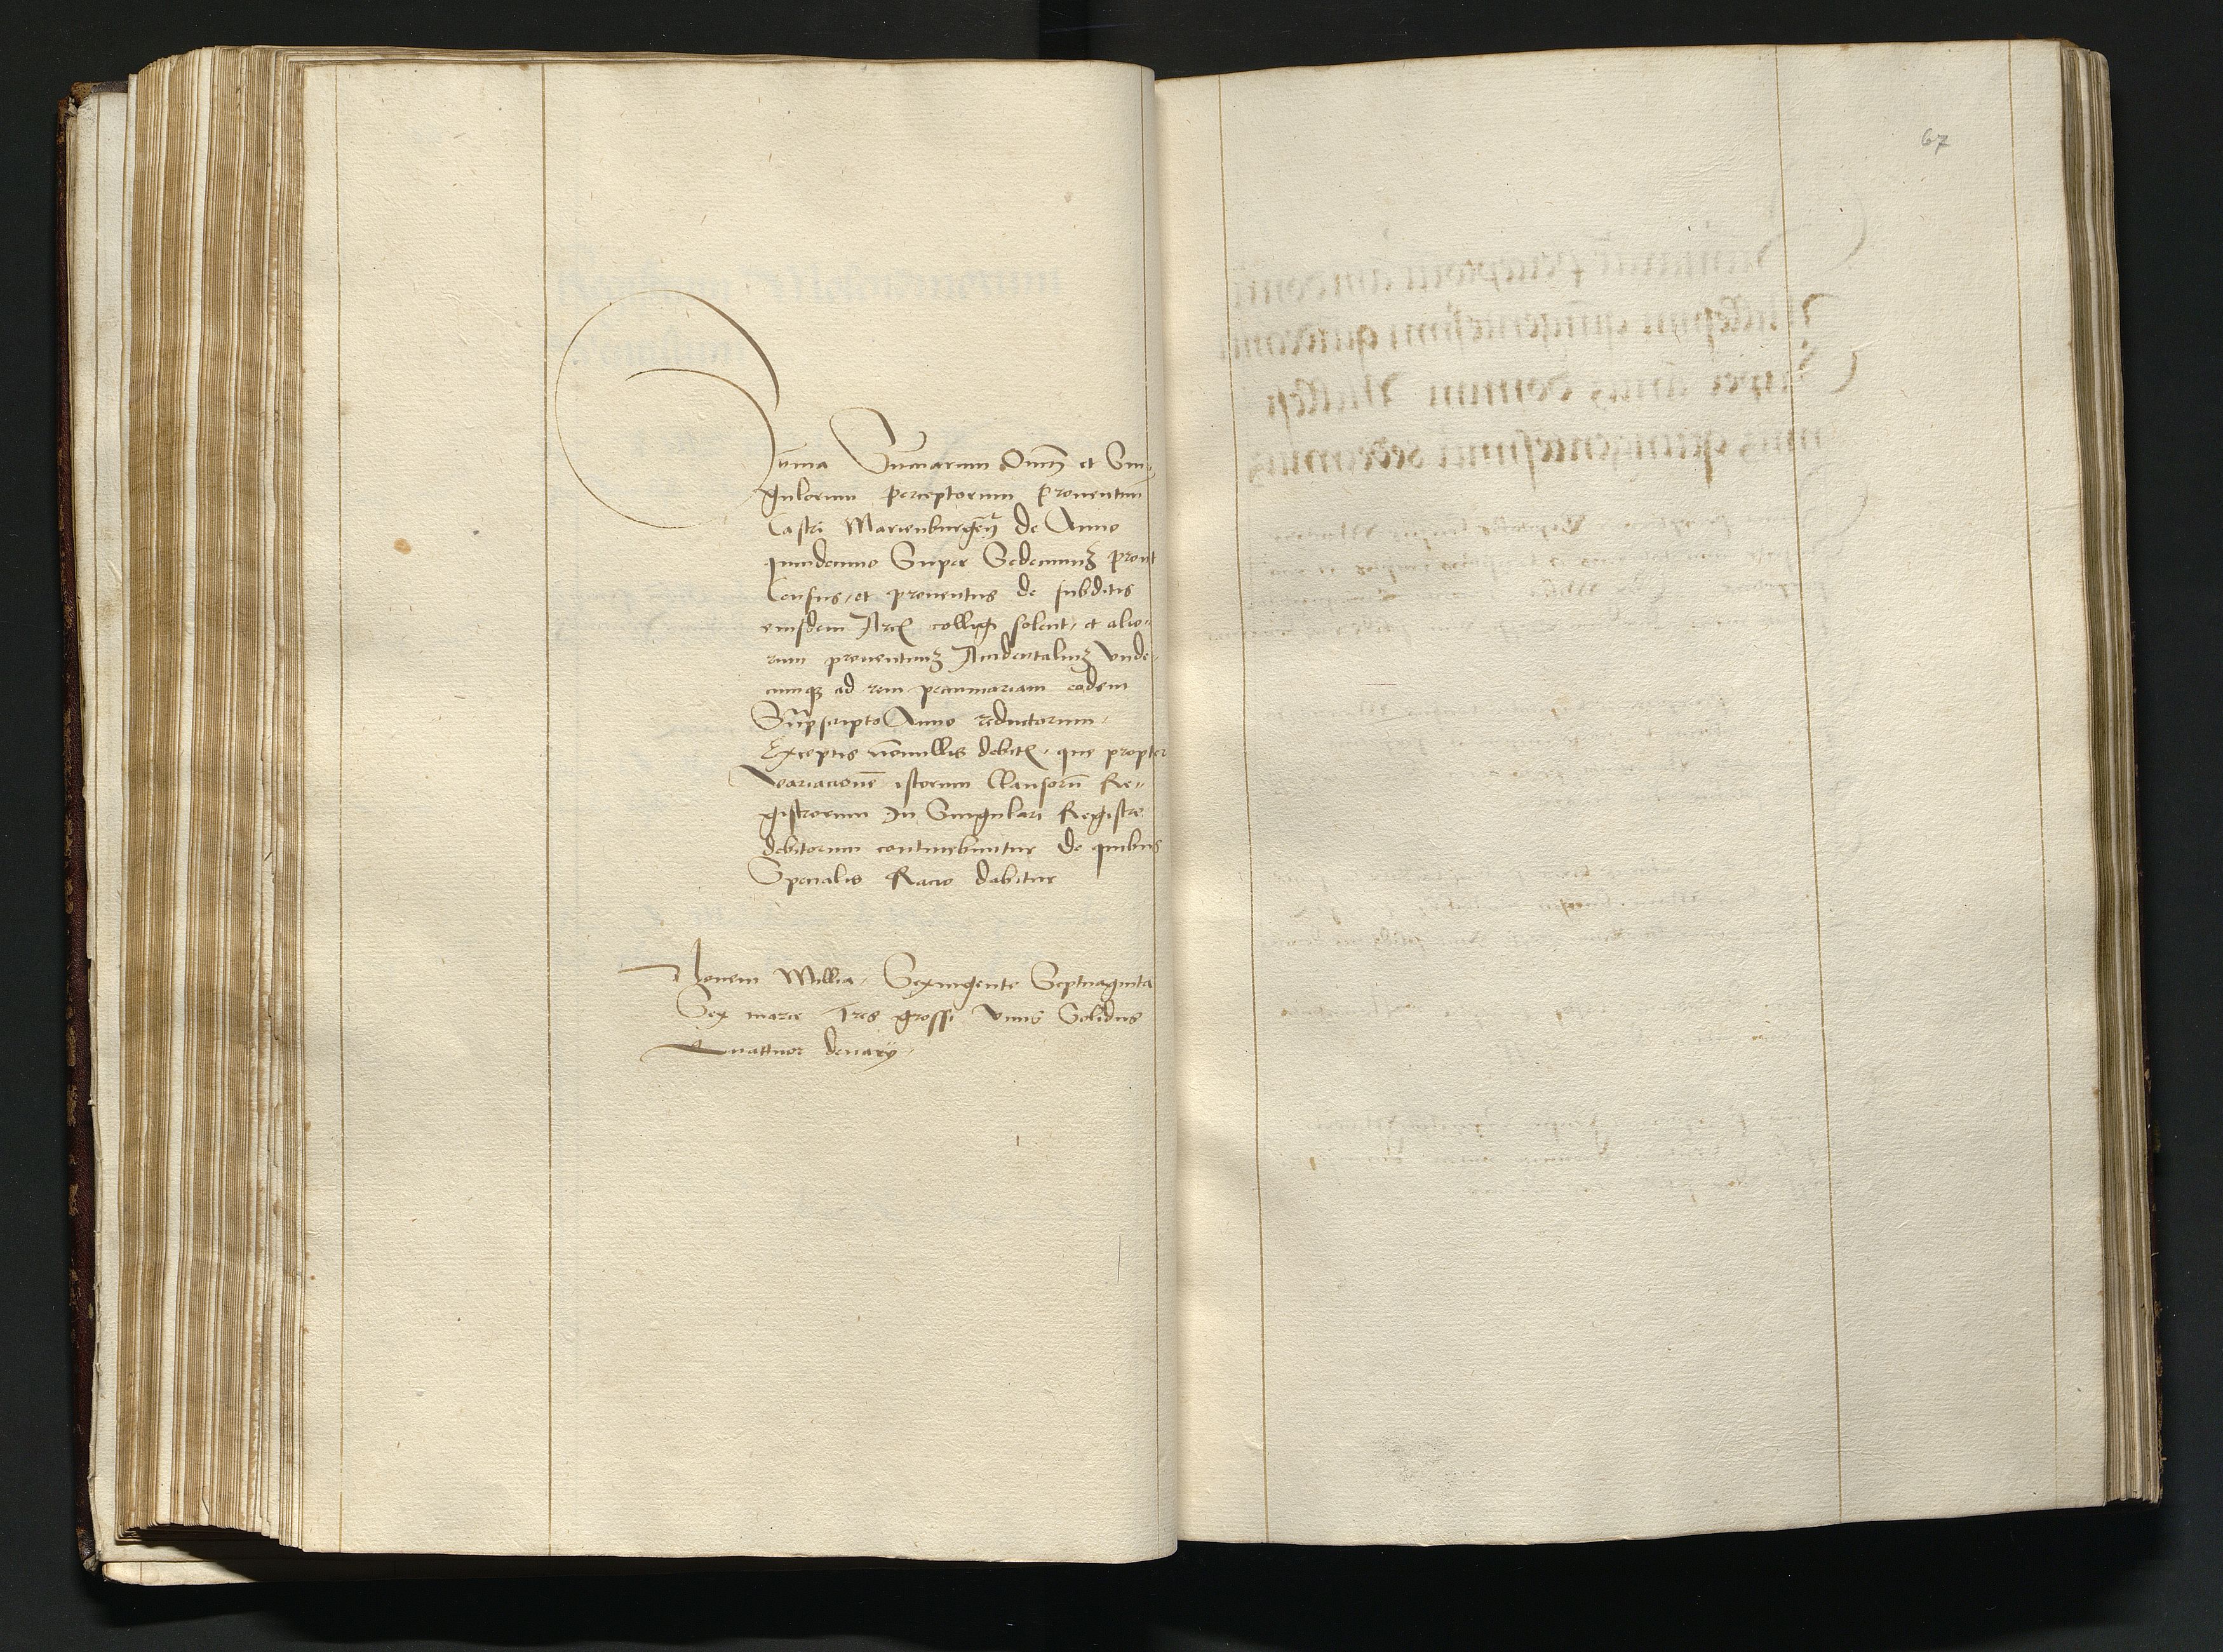 Suma Sumarum Omnium et Sin-
gulorum perceptorum Prouentuum
Castri Marienburgensis de Anno
quindecimo Super Sedecimum prout
Census, et prouentus de subditis
eiusdem Arcis colligi solent, et alio-
rum prouentuum Accidentalium Unde-
cumque ad rem pecuniariam eodem
Suprascripto Anno reductorum,
Exceptis nonnullis debitis, que propter
Variacionem istorum Clausorum Re-
gistrorum In Singulari Registro
debitorum continebuntur De quibus
Specialis Racio dabitur
Nouem Millia, Sexingente Septuaginta
Sex marce Tres grossi Unus Solidus
Quattuor denarij,
67